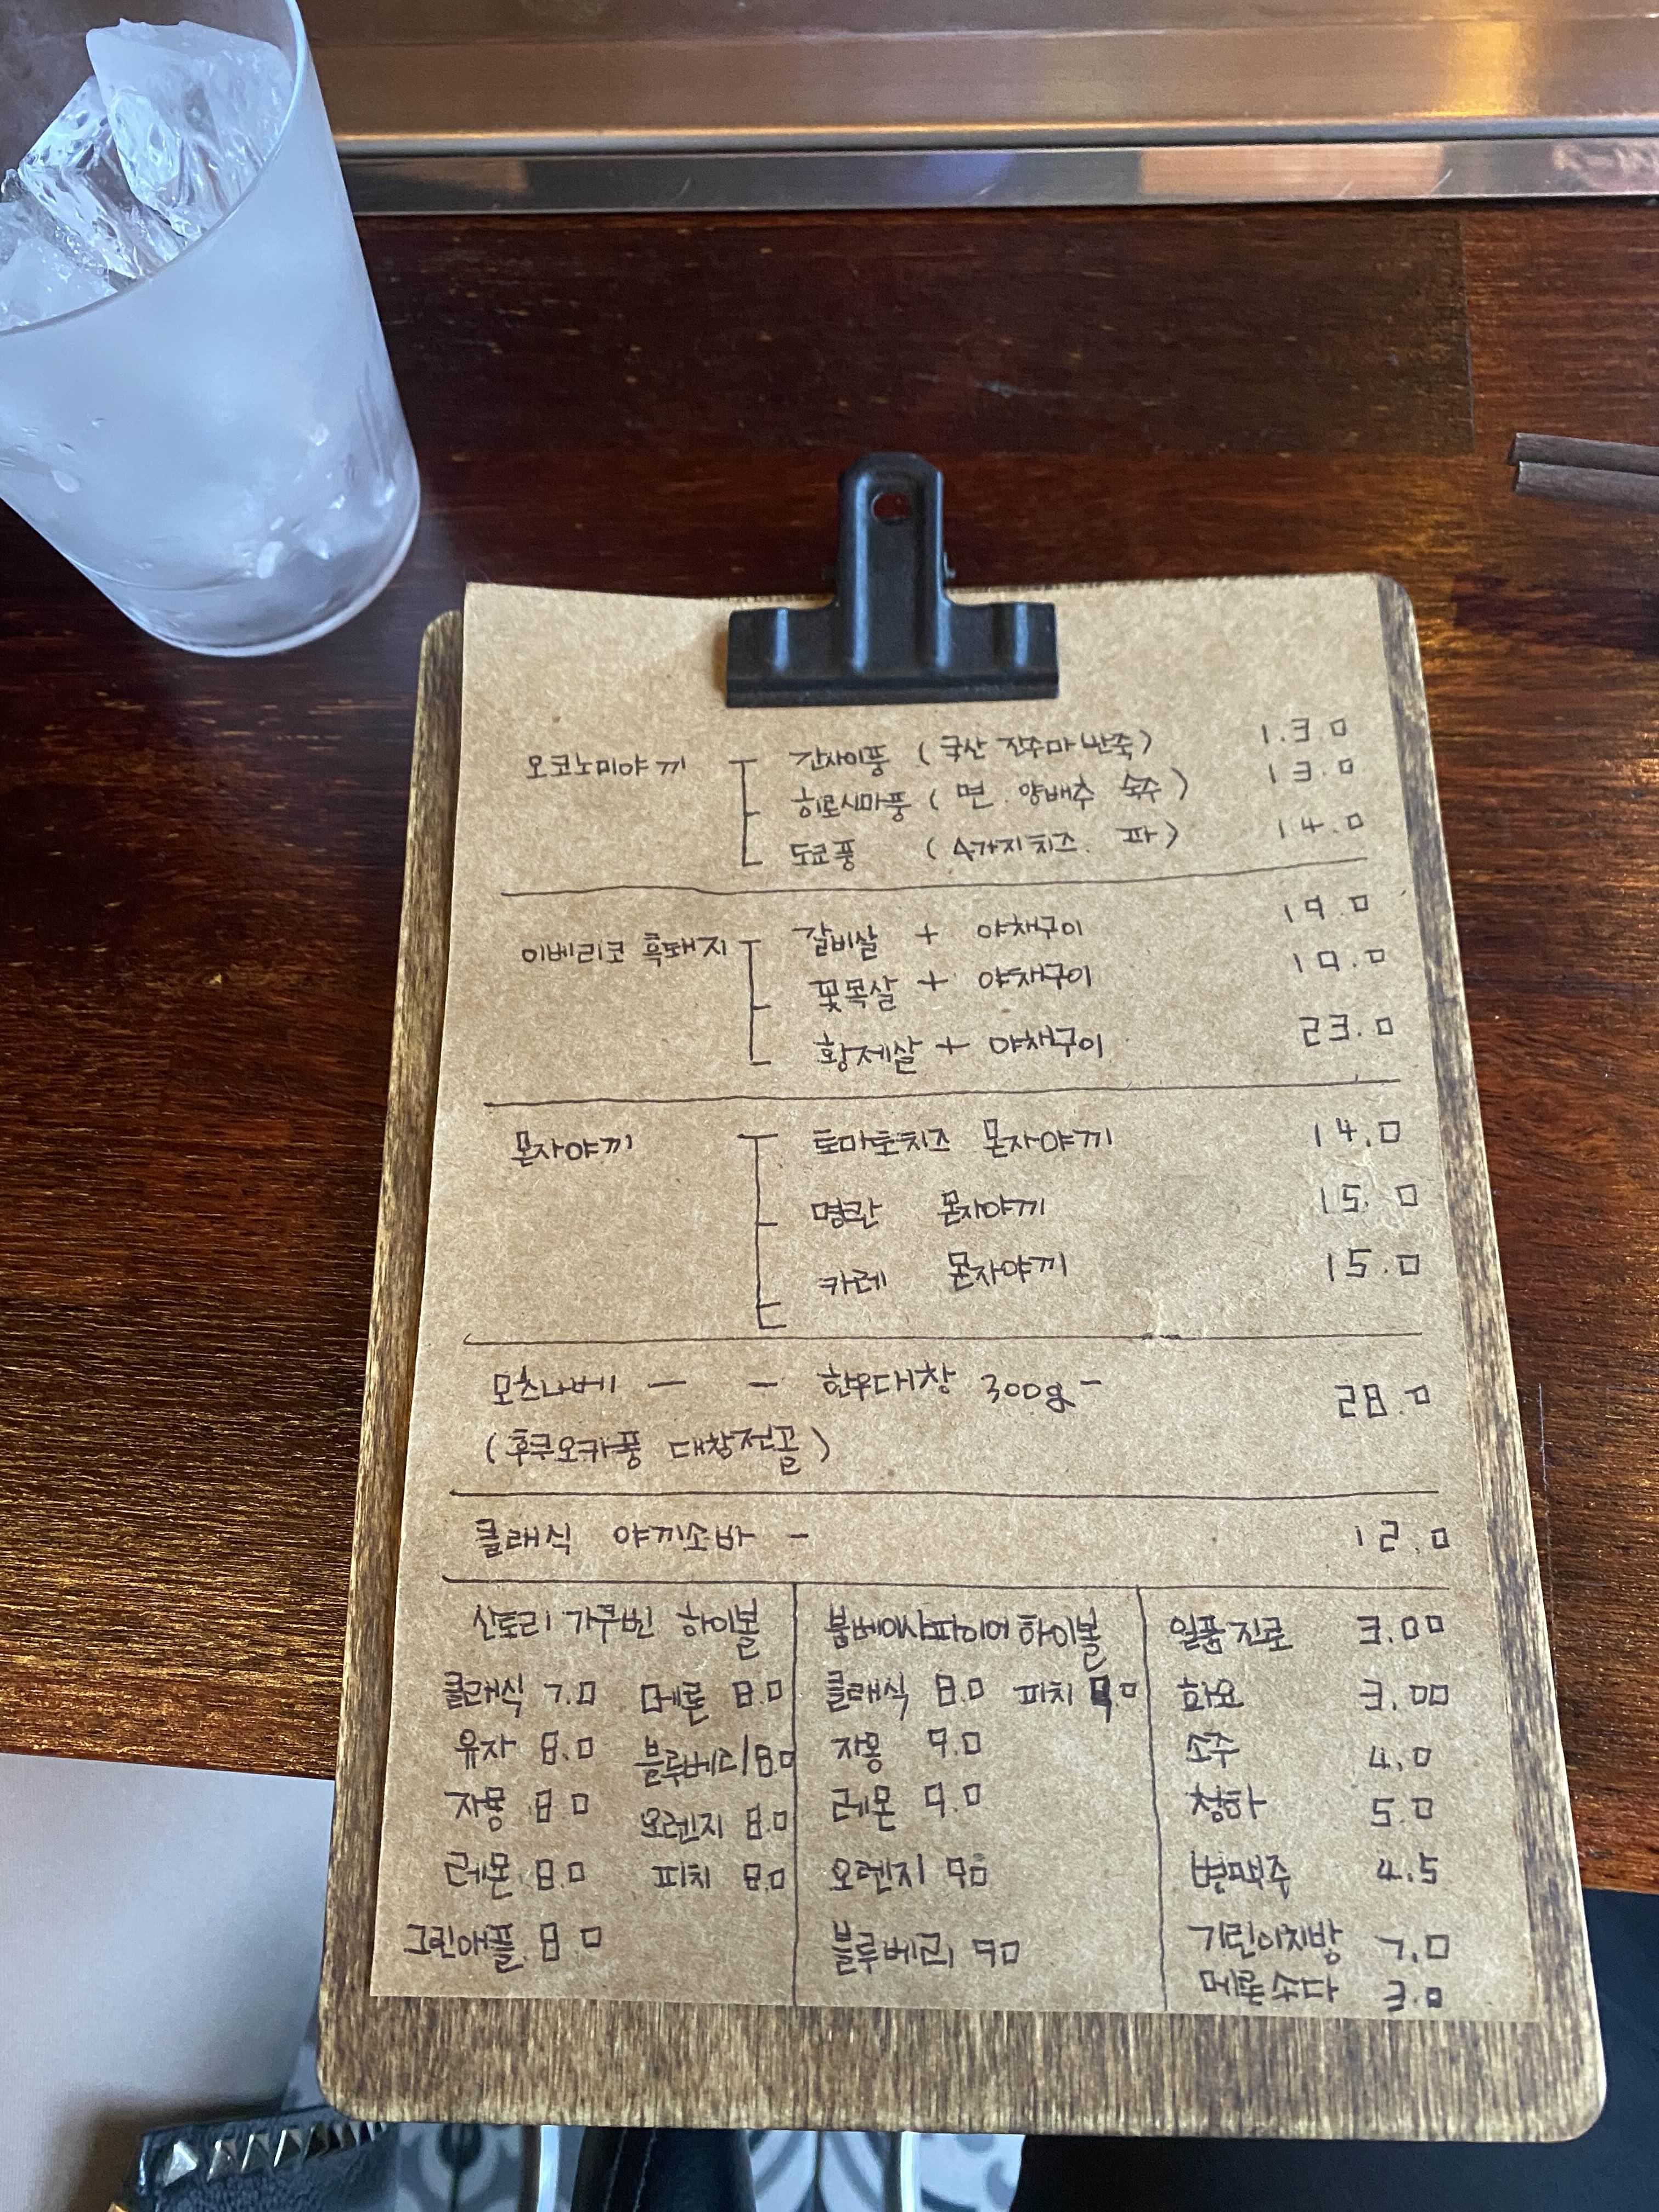 오코노미야끼 간사이풍 (국산 진주마 반죽) 1.3.0
히로시마풍 (면. 양배추 숙주) 13.0
도쿄풍 (4가지치즈. 파) 14.0
이베리코 흑돼지 갈비살 + 야채구이 19.0
꽃목살 + 야채구이 19.0
황제살 + 야채구이 23.0
몬자야끼 토마토치즈 몬자야끼 14.0
명란 몬자야끼 15.0
카레 몬자야끼 15.0
모츠나베 - - 한우대창 300g - 28.0
(후쿠오카풍 대창전골)
클래식 야끼소바 - 12.0
산토리 가쿠빈 하이볼
클래식 7.0 메론 8.0
유자 8.0 블루베리 8.0
자몽 8.0 오렌지 8.0
레몬 8.0 피치 8.0
그린애플 8.0
붐베이사파이어 하이볼
클래식 8.0 피치 9.0
자몽 9.0
레몬 9.0
오렌지 90
블루베리 90
일품진로 3.00
화요 3.00
소주 4.0
청하 5.0
병맥주 4.5
기린이치방 7.0
메론소다 3.0